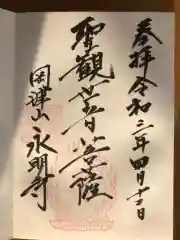 奉拝 令和三年四月十三日
聖観世音菩薩
岡津山 永明寺